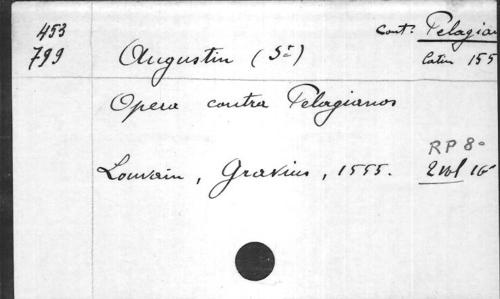 453
799
Cont: Pelagian
Latin 155
Augustin (St)
Opera contra Pelagianos
RP 8-
Louvain, Gravius, 1555.
2 vol 16°